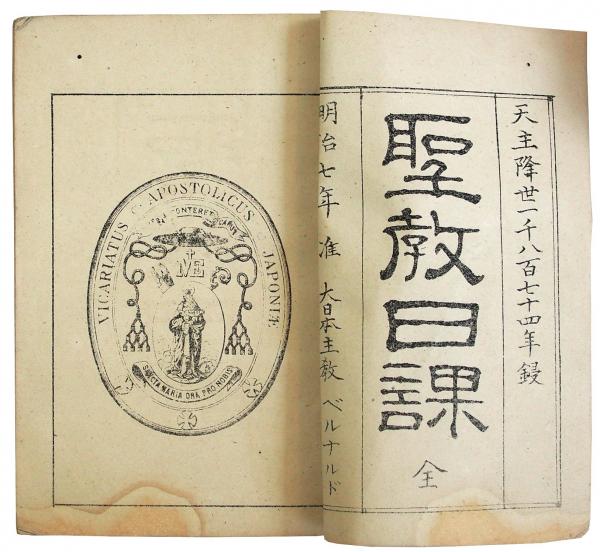 天主降世一千八百七十四年鋟
聖教日課
全
明治七年 准 大日本主教 ベルナルド
VICARIATUS APOSTOLICUS JAPONIÆ
CONTERET
SANCTA MARIA ORA PRO NOBIS